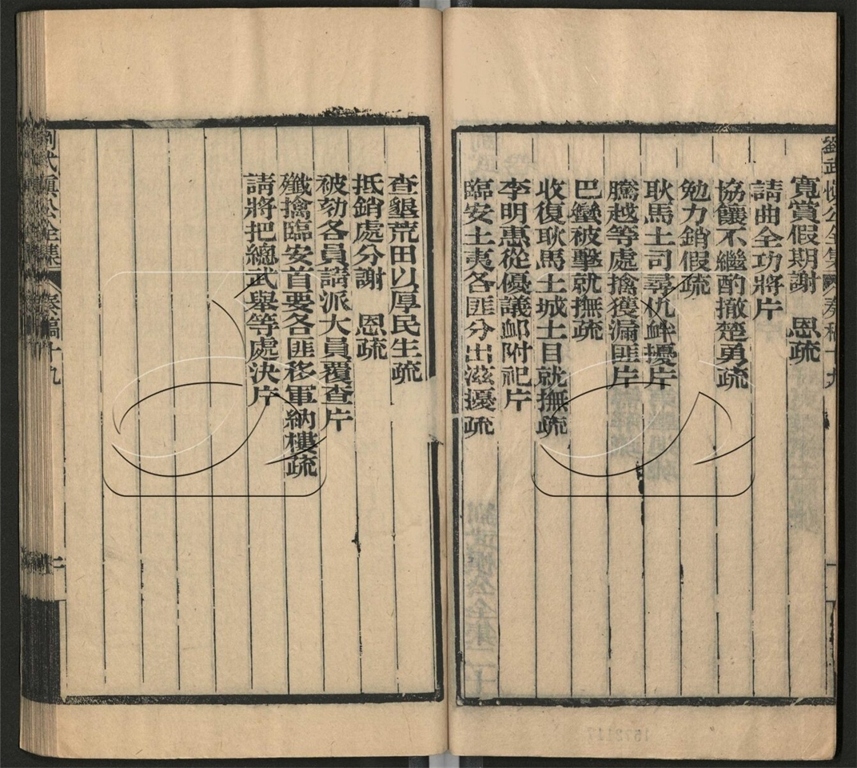 劉武慎公全集 奏稿十九
寬賞假期謝 恩疏
請曲全功將片
協饟不繼酌撤楚勇疏
勉力銷假疏
耿馬土司尋仇衅擾片
騰越等處擒獲漏匪片
巴蠻被擊就撫疏
收復耿馬土城土目就撫疏
李明惠從優議卹附祀片
臨安土夷各匪分出滋擾疏
查墾荒田以厚民生疏
抵銷處分謝 恩疏
被劾各員請派大員覆查片
殲擒臨安首要各匪移軍納樓疏
請將把總武舉等處決片
劉武慎公全集 奏稿十九